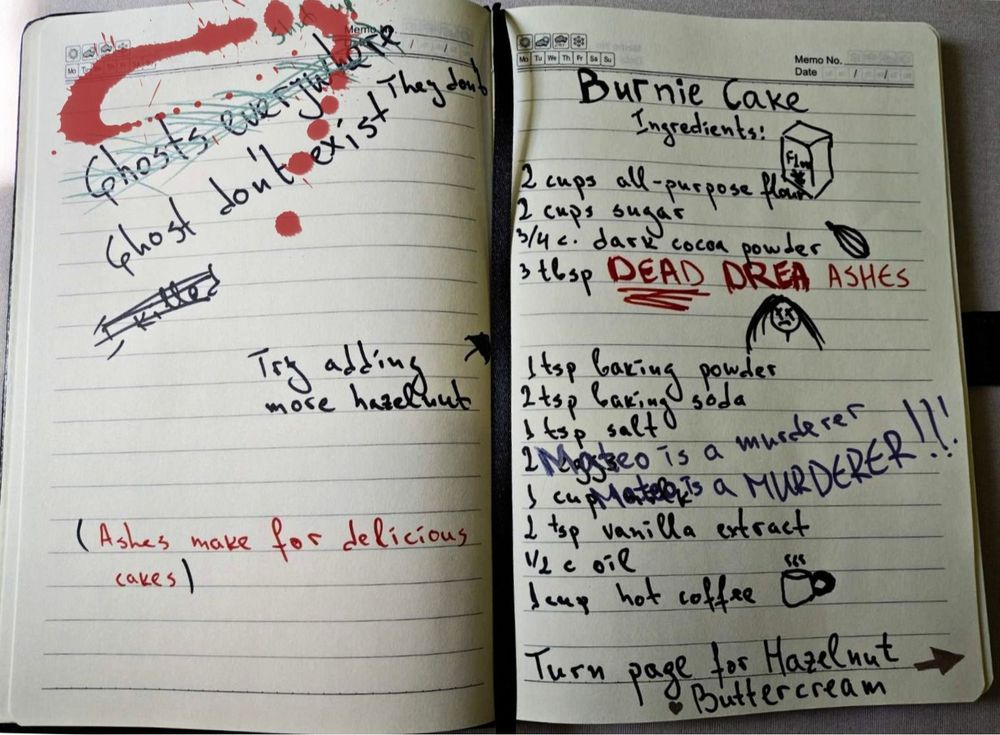 Memo No.
Mo Tu
Ghosts everywhere
They don't
Ghost don't exist
Try adding
more hazelnut
(Ashes make for delicious
cakes)
Mo Tu We Th Fr Sa Su
Memo No.
Date / /
Burnie Cake
Ingredients:
2 cups all-purpose flour
2 cups sugar
3/4 c. dark cocoa powder
3 tbsp DEAD DREA ASHES
1 tsp baking powder
2 tsp baking soda
1 tsp salt
2 eggs
Mateo is a murderer
1 cup milk
Mateo is a MURDERER!!!
2 tsp vanilla extract
1/2 c oil
1 cup hot coffee
Turn page for Hazelnut
Buttercream